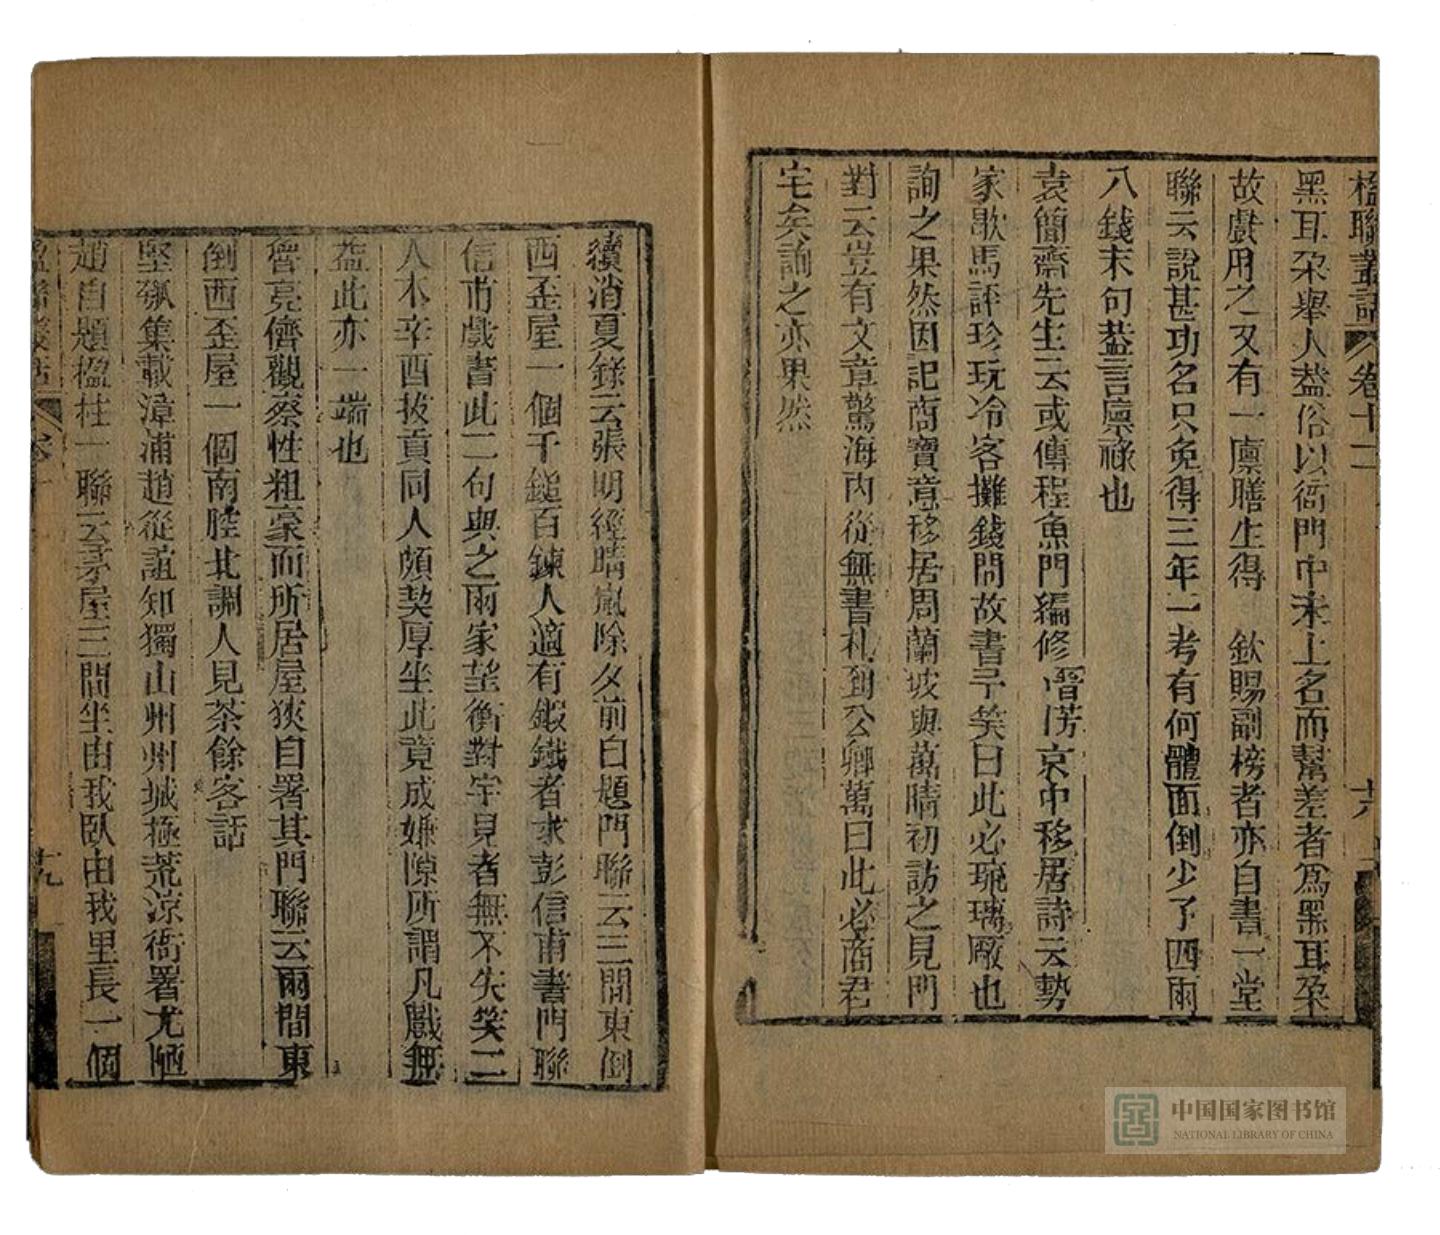 楹聯叢話 卷十二 十八
黑耳朶舉人葢俗以衙門中未上名而幫差者爲黑耳朶
故戲用之又有一廪膳生得 欽賜副榜者亦自書一堂
聯云說甚功名只免得三年一考有何體面倒少了四兩
八錢末句葢言廪祿也
袁簡齋先生云或傳程魚門編修晉芳京中移居詩云勢
家歇馬評珍玩冷客攤錢問故書予笑曰此必琉璃厰也
詢之果然因記商寶意移居周蘭坡與萬晴初訪之見門
對云豈有文章驚海內從無書札到公卿萬曰此必商君
宅矣詢之亦果然
續消夏錄云張明經晴嵐除夕前自題門聯云三間東倒
西歪屋一個千鎚百鍊人適有鍛鐵者求彭信甫書門聯
信甫戲書此二句與之兩家望衡對宇見者無不失笑二
人本辛酉拔貢同人頗契厚坐此竟成嫌隙所謂凡戲無
益此亦一端也
魯亮儕觀察性粗豪而所居屋狹自署其門聯云兩間東
倒西歪屋一個南腔北調人見茶餘客話
堅瓠集載漳浦趙從誼知獨山州州城極荒涼衙署尤陋
趙自題楹柱一聯云茅屋三間坐由我臥由我里長一個
楹聯叢話 卷十 十九